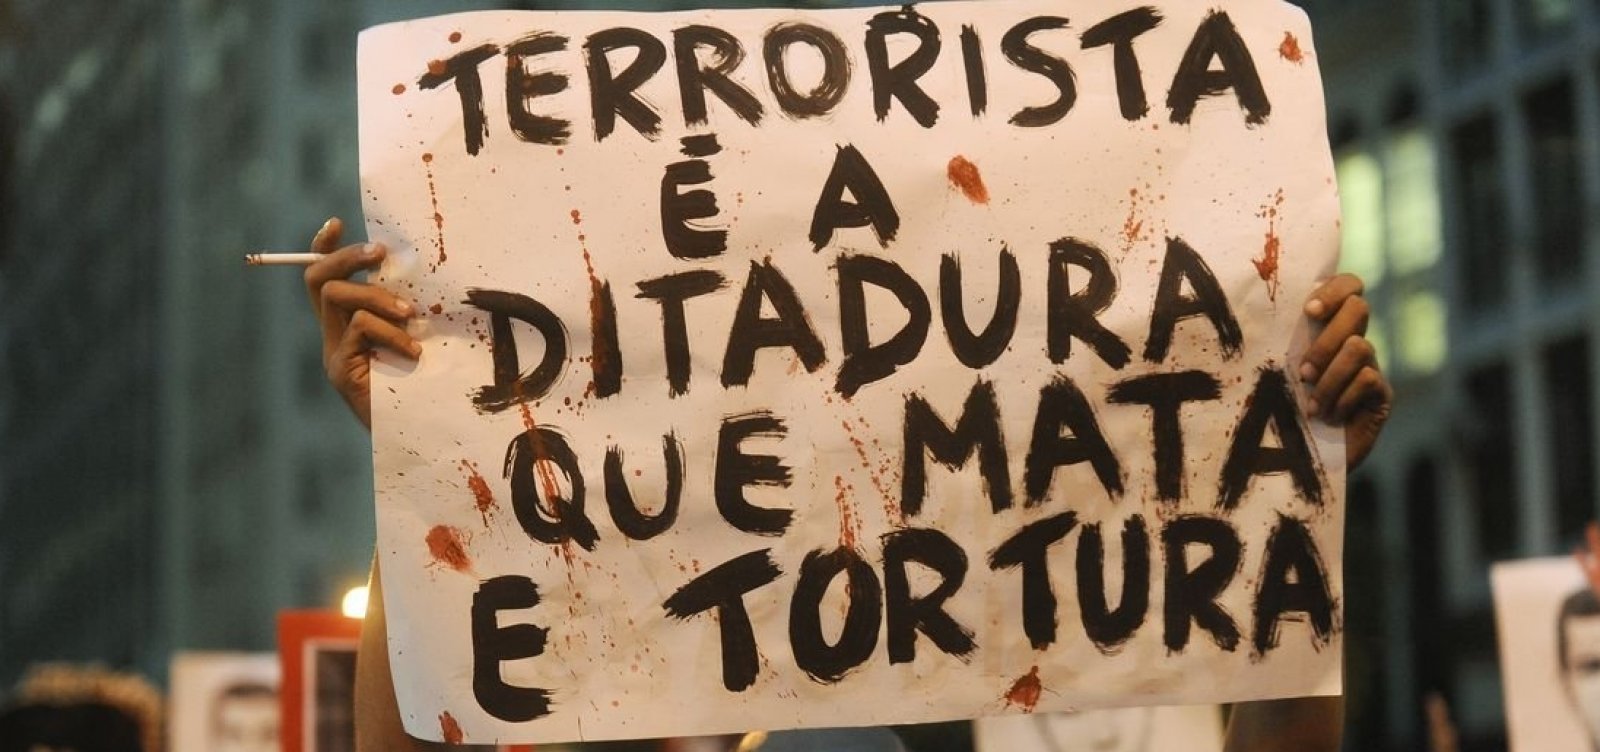 TERRORISTA
É A
DITADURA
QUE MATA
E TORTURA